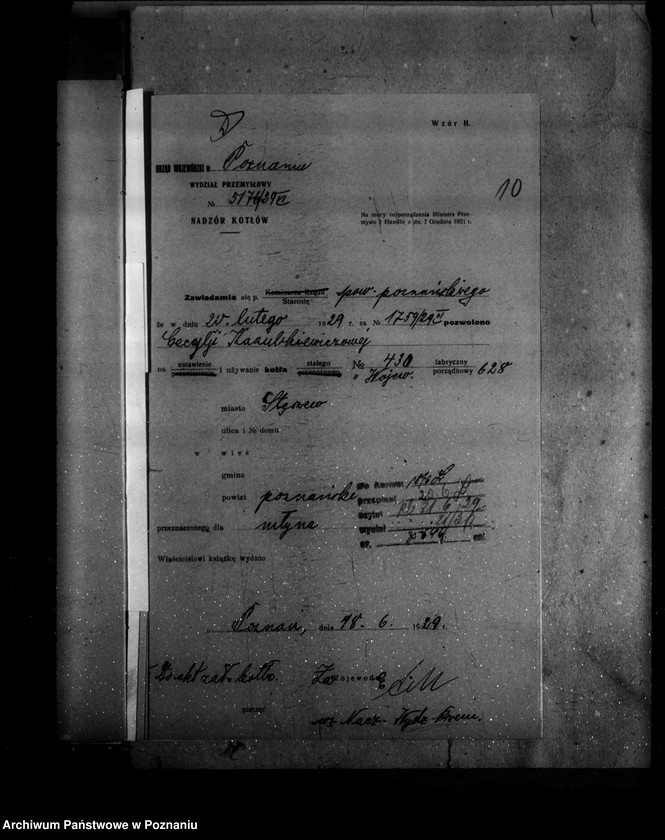 Wzór H.
URZĄD WOJEWÓDZKI w Poznaniu
10
WYDZIAŁ PRZEMYSŁOWY
№ 5176/29 VI
NADZÓR KOTŁÓW
Na mocy rozporządzenia Ministra Prze-
mysłu i Handlu z dn. 7 Grudnia 1921 r.
Zawiadamia się p. Komisarza Rządu pow. poznańskiego
Starostę
że w dniu 20. lutego 1929 r. za № 1759/29 VI pozwolono
Cecylji
na ustawienie i używanie kotła stałego № 430 fabryczny
" Wojew. porządkowy 628
miasto
ulica i № domu
w wieś
gmina
powiat poznański
przeznaczonego dla młyna
Właścicielowi książkę wydano
Poznań, dnia 18. 6. 1929 r.
Do akt zad. kotła. Za Wojewodę
pieczęć
Nacz. Wydz. Przem.
Archiwum Państwowe w Poznaniu